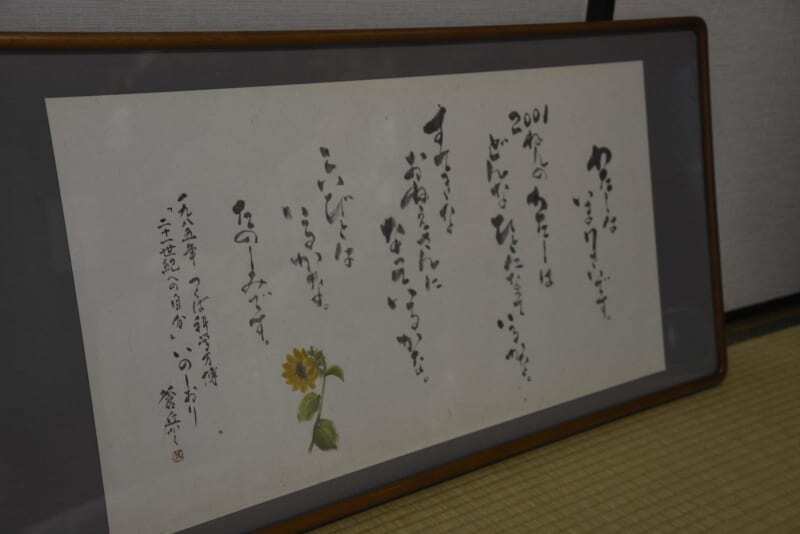 わたしは
いま9さいです。
2001ねんの わたしは
どんなひとになって いるかな。
すてきな
おねえさんに
なっているかな。
こいびとは
いるかな。
たのしみです。
一九八五年 つくば科学万博
「二十一世紀への自分」 いのしおり